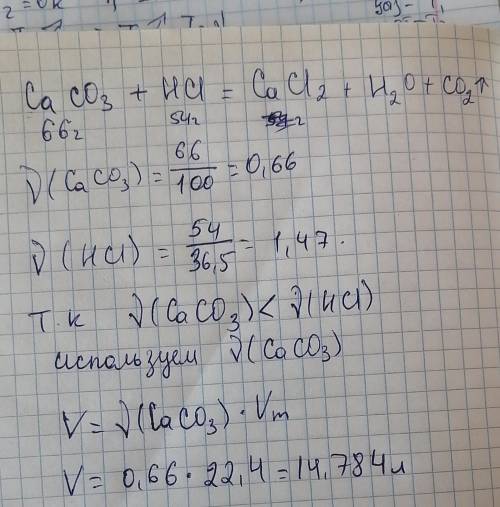 CaCO₃ + HCl = CaCl₂ + H₂O + CO₂↑
66г 54г
ν(CaCO₃) = 66/100 = 0,66
ν(HCl) = 54/36,5 = 1,47.
т.к ν(CaCO₃) < ν(HCl)
используем ν(CaCO₃)
V = ν(CaCO₃) · Vm
V = 0,66 · 22,4 = 14,784л